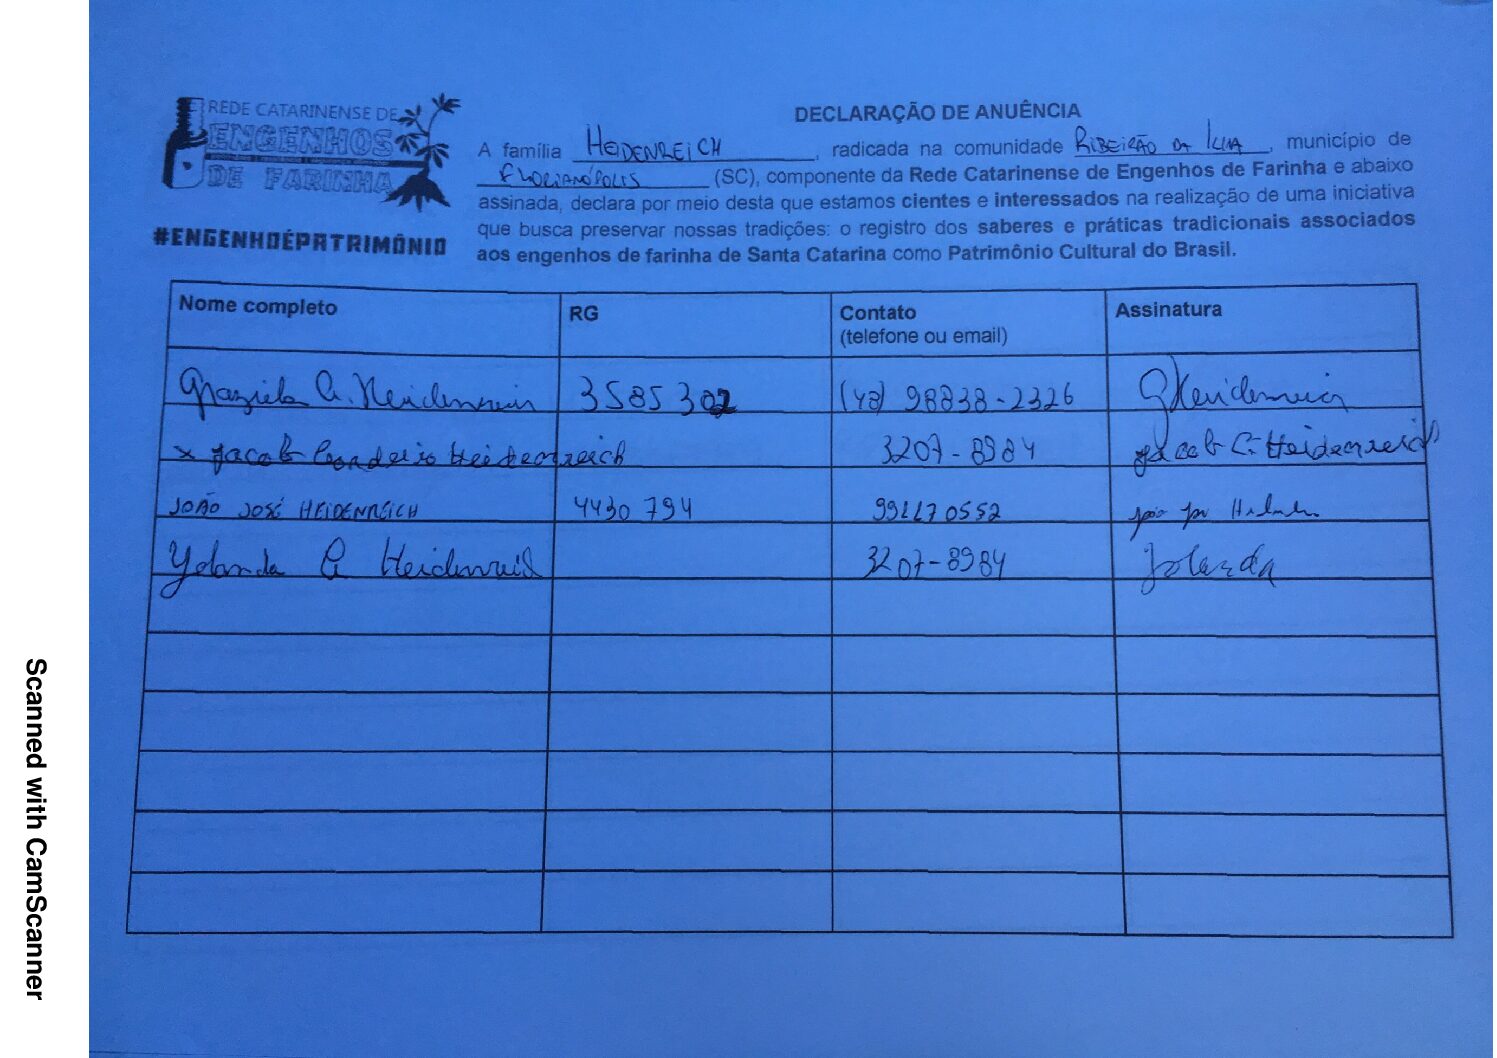 REDE CATARINENSE DE
ENGENHOS
DE FARINHA
#ENGENHOÉPATRIMÔNIO
DECLARAÇÃO DE ANUÊNCIA
A família HEIDENREICH, radicada na comunidade RIBEIRÃO DA ILHA, município de
FLORIANÓPOLIS (SC), componente da Rede Catarinense de Engenhos de Farinha e abaixo
assinada, declara por meio desta que estamos cientes e interessados na realização de uma iniciativa
que busca preservar nossas tradições: o registro dos saberes e práticas tradicionais associados
aos engenhos de farinha de Santa Catarina como Patrimônio Cultural do Brasil.
Nome completo RG Contato Assinatura
(telefone ou email)
Graziela C. Heidenreich 3585302 (48) 98838-2326 GHeidenreich
x Jacob Cordeiro Heidenreich 3207-8984 Jacob C. Heidenreich
JOÃO JOSÉ HEIDENREICH 4430794 991170552 João José
Yolanda C Heidenreich 3207-8984 Yolanda
Scanned with CamScanner